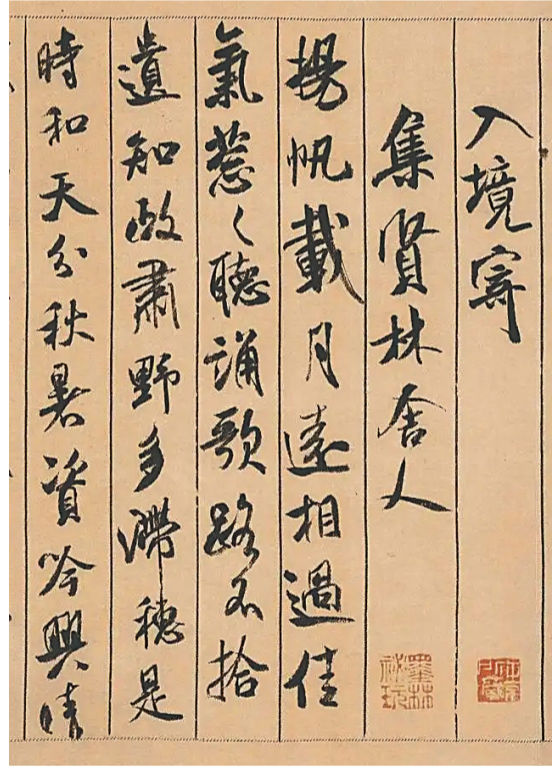 入境寄
集賢林舍人
揚帆載月遠相過佳
氣葱々聽誦歌路不拾
遺知政肅野多滯穗是
時和天分秋暑資吟興晴
墨林秘玩